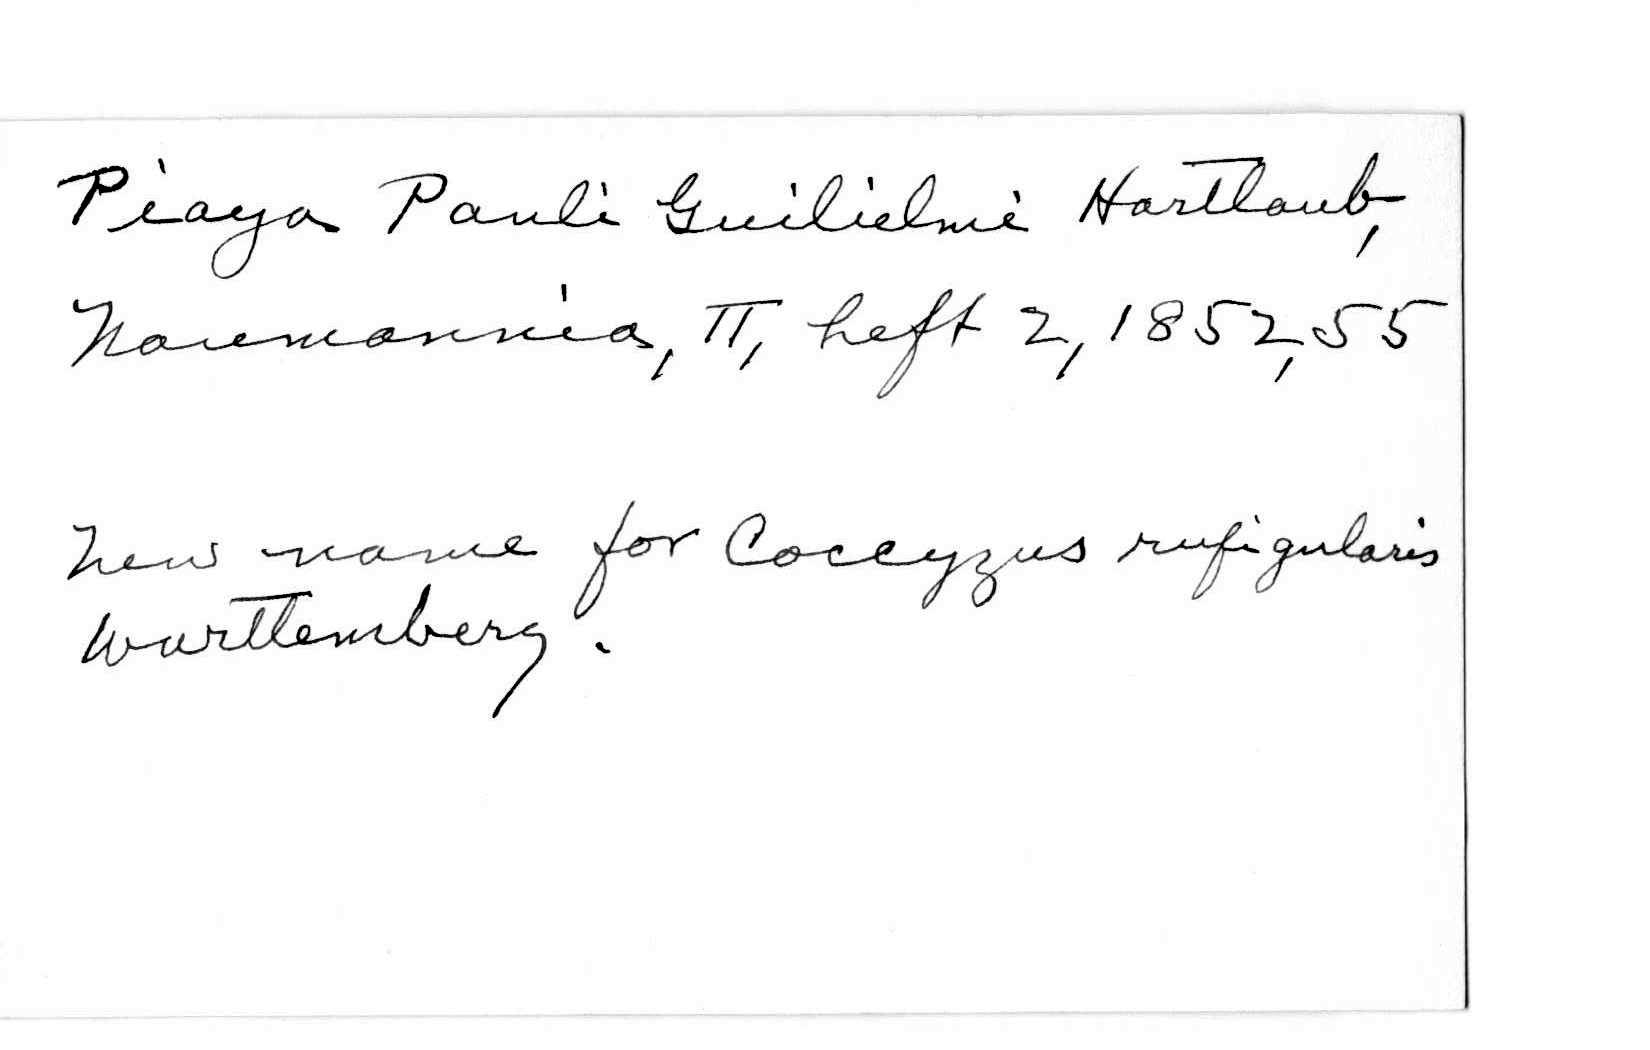 Piaya Pauli Guilielmi Hartlaub,
Naumannia, II, heft 2, 1852, 55
New name for Coccyzus rufigularis
Wurttemberg.